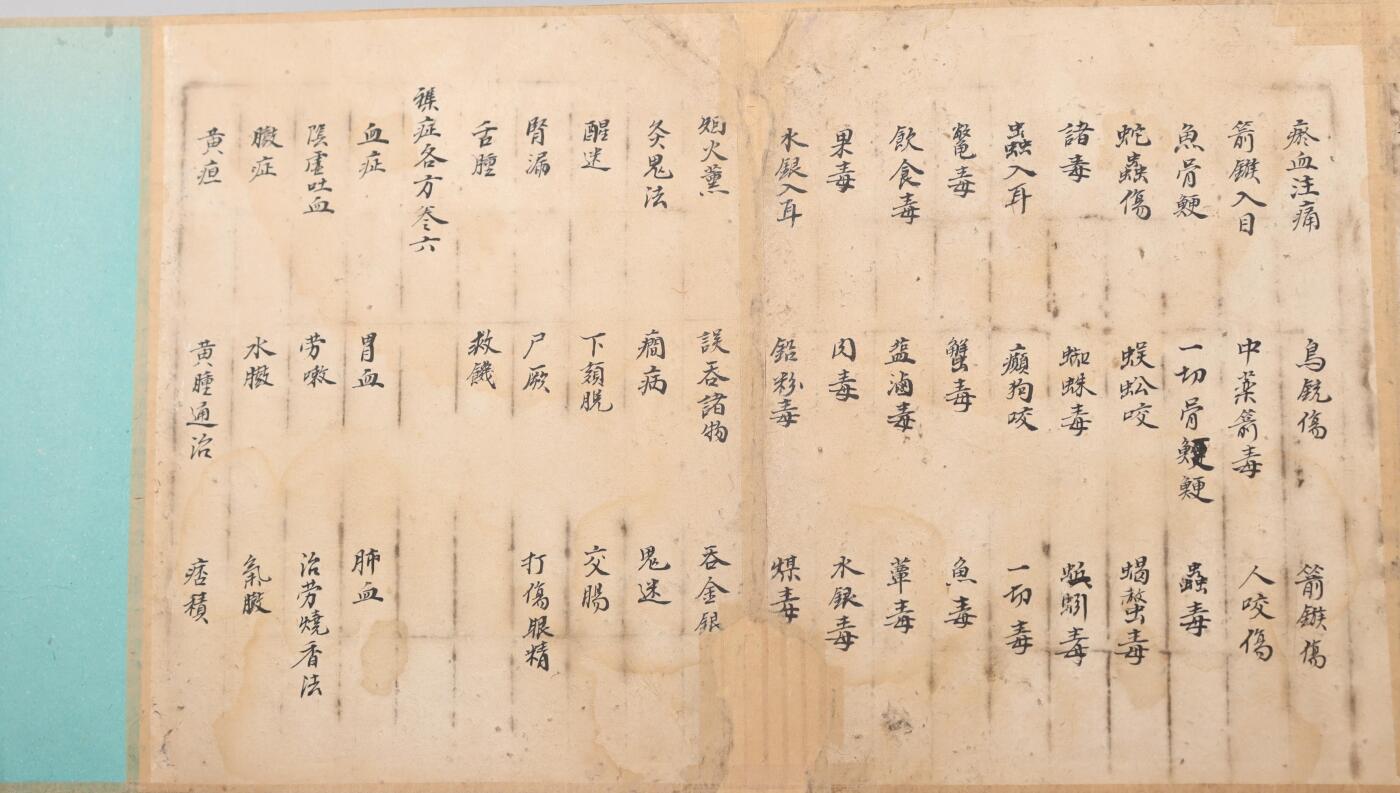 瘀血注痛 鳥銃傷 箭鏃傷
箭鏃入目 中藥箭毒 人咬傷
魚骨鯁 一切骨鯁鯁 蟲毒
蛇蟲傷 蜈蚣咬 蝎螫毒
諸毒 蜘蛛毒 蚯蚓毒
蟲入耳 癲狗咬 一切毒
鱉毒 蟹毒 魚毒
飲食毒 蓝滷毒 蕈毒
果毒 肉毒 水銀毒
水銀入耳 鉛粉毒 煤毒
火薰 誤吞諸物 吞金銀
灸鬼法 癎病 鬼迷
醒迷 下頦脱 交腸
腎漏 尸厥 打傷眼精
舌腫 救饑
襍症各方 叁六
血症 胃血 肺血
陰虛吐血 劳嗽 治劳燒香法
臌症 水臌 氣臌
黄疸 黄腫通治 痞積